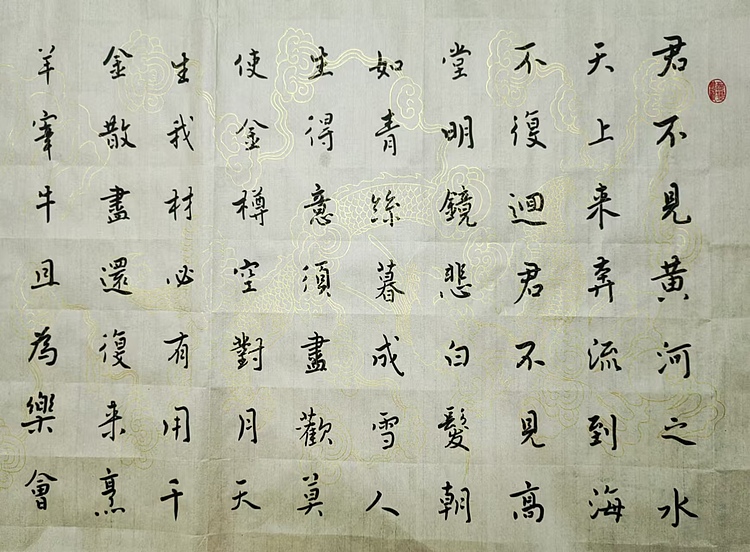 君不見黃河之水
天上来奔流到海
不復迴君不見高
堂明鏡悲白髮朝
如青絲暮成雪人
生得意須盡歡莫
使金樽空對月天
生我材必有用千
金散盡還復来烹
羊宰牛且為樂會